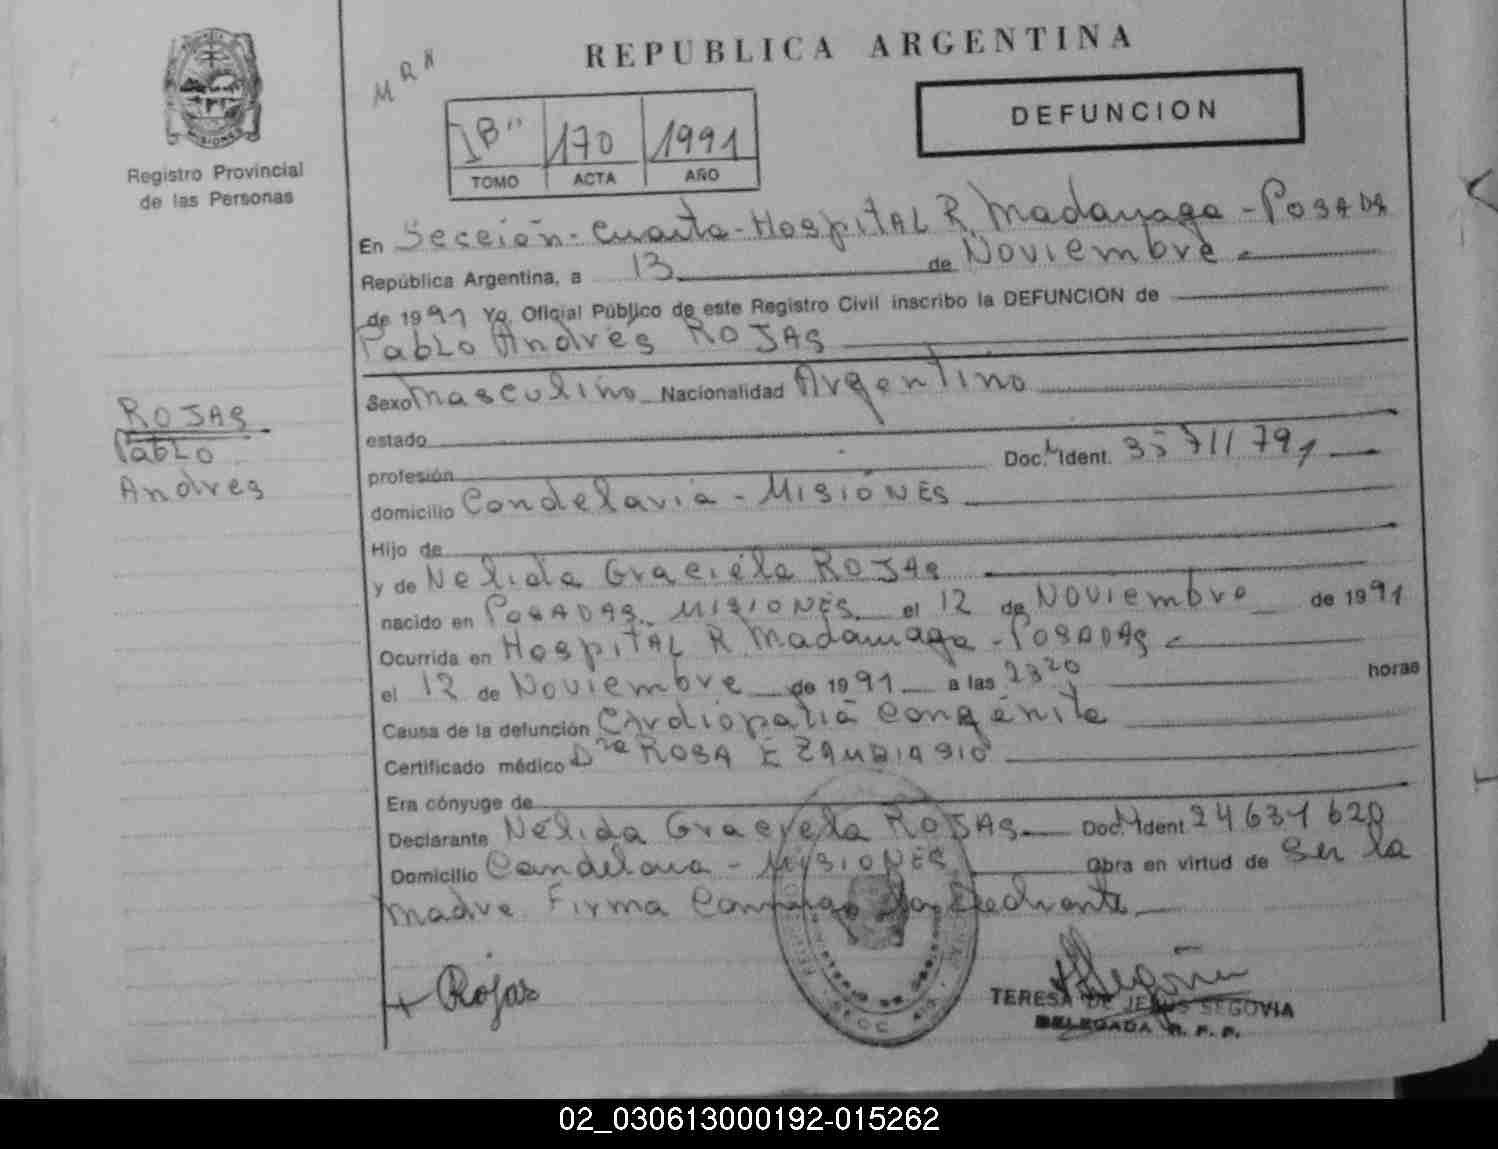 REPUBLICA ARGENTINA
MRN
DEFUNCION
Registro Provincial
de las Personas
"B" 170 1991
TOMO ACTA AÑO
En Sección - Cuarta - Hospital R. Madariaga - POSADA
República Argentina, a 13 de Noviembre
de 1991 Yo, Oficial Público de este Registro Civil inscribo la DEFUNCION de
Pablo Andrés ROJAS
Sexo Masculino Nacionalidad Argentino
ROJAS
Pablo
Andres
estado
profesión Doc. Ident. 35711791
domicilio Candelaria - MISIONES
Hijo de
y de Nelida Graciela ROJAS
nacido en POSADAS MISIONES el 12 de Noviembre de 1991
Ocurrida en Hospital R. Madariaga - POSADAS
el 12 de Noviembre de 1991 a las 2320 horas
Causa de la defunción Cardiopatía Congénita
Certificado médico Dra ROSA E
Era cónyuge de
Declarante Nélida Graciela ROJAS Doc. M. Ident. 24631620
Domicilio Candelaria - MISIONES Obra en virtud de Ser la
madre Firma
+ Rojas
TERESA DE JESUS SEGOVIA
DELEGADA R. P. P.
02_030613000192-015262